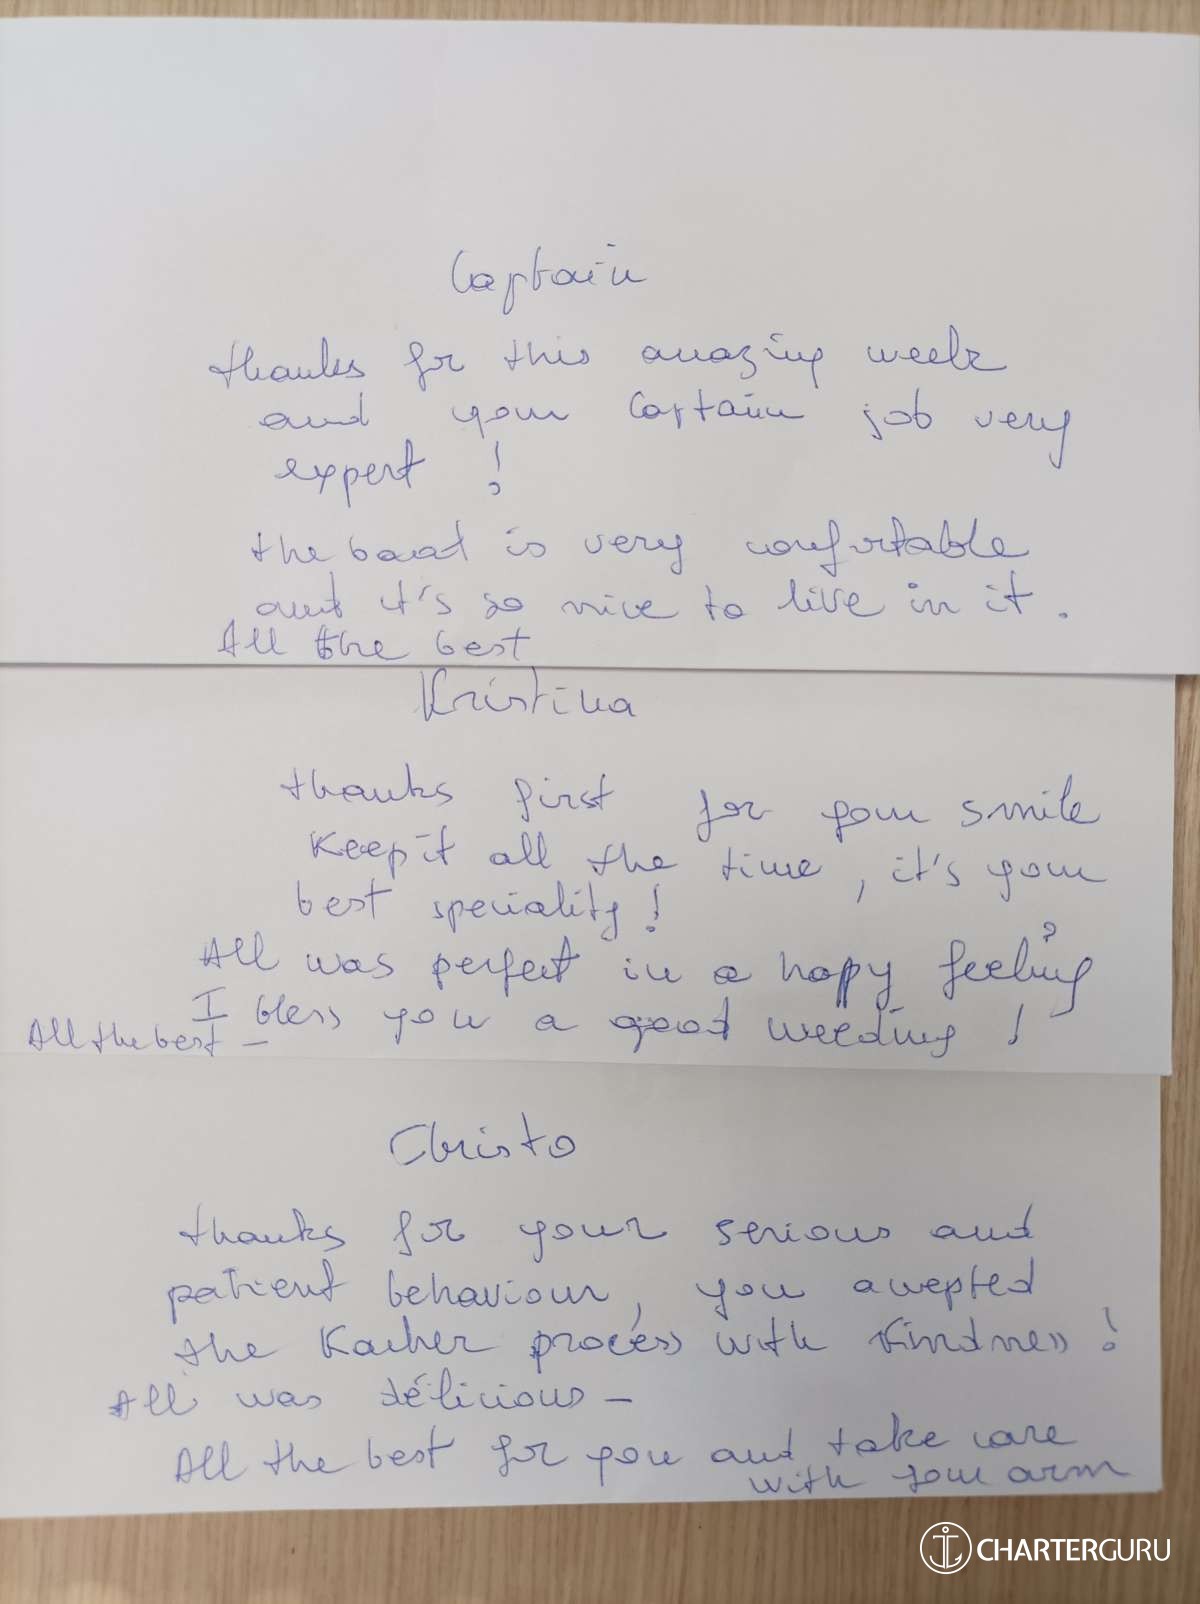 Captain
thanks for this amazing week
and your Captain job very
expert !
the boat is very confortable
and it's so nice to live in it.
All the best
Kristina
thanks first for your smile
Keep it all the time, it's your
best speciality !
All was perfect in a happy feeling
I bless you a good weeding !
All the best -
Christo
thanks for your serious and
patient behaviour, you accepted
the Kacher process with Kindness !
All was délicious -
All the best for you and take care
with your arm
CHARTERGURU